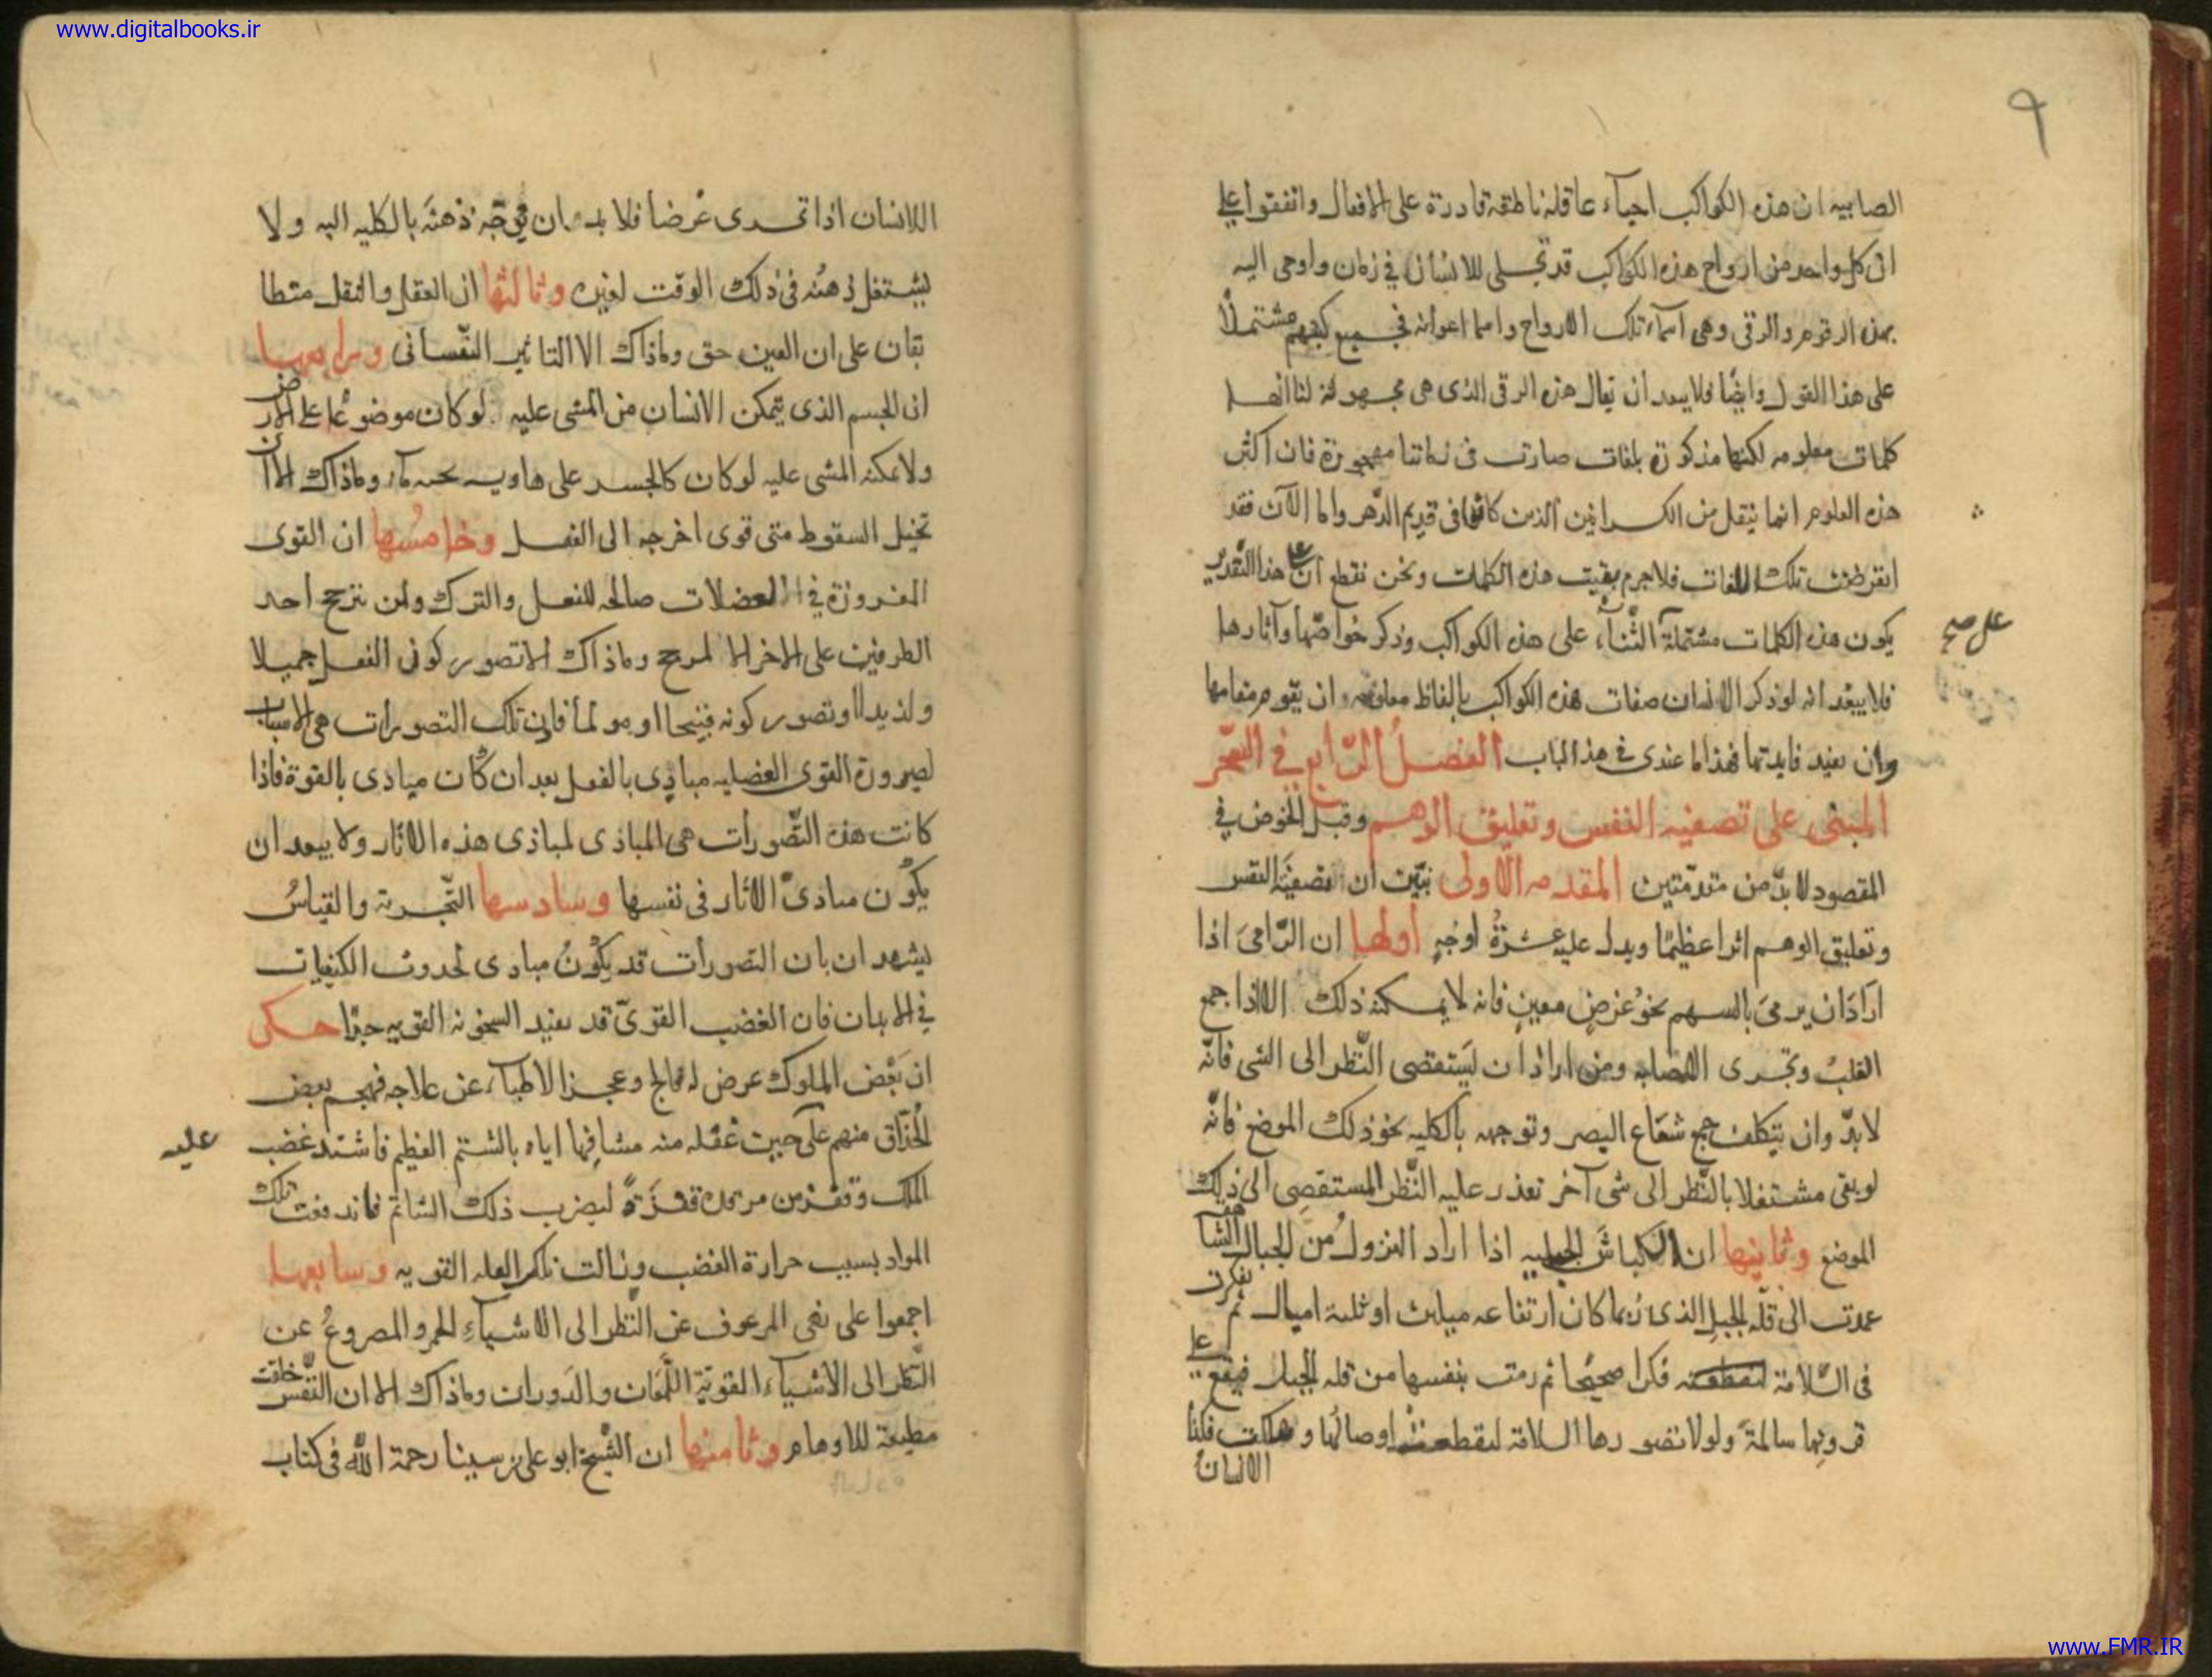 www.digitalbooks.ir
٩
الصابيه ان هذه الكواكب احيآء عاقلة ناطقة قادرة على الافعال واتفقوا على
ان كل واحد من ارواح هذه الكواكب قد تجلى للانسان في زمان واوحى اليه
بهذه الرقوم والرقى وهى اسماء تلك الارواح واسما اعوانه فى جميع كتبهم مشتملاً
على هذا القول وايضًا فلا يبعد ان يقال هذه الرقى الذى هى مجهولة لنا انها
كلمات معلومه لكنها مذكورة بلغات صارت فى زماننا مهجورة فان اكثر
هذه العلوم انما ينقل من الكسرانيين الذين كانوا فى قديم الدّهر واما الآن فقد
انقرضت تلك اللغات فلا جرم بقيت هذه الكلمات ونحن نقطع ان على هذا التقدير
يكون هذه الكلمات مشتملة الثّنآء على هذه الكواكب وذكر خوآصّها وآثارها
على صح
فلا يبعد انه لو ذكر الانسان صفات هذه الكواكب بالفاظ معلومه ان يقوم مقامها
وان يفيد فايدتها فهذا ما عندى فى هذا الباب الفصلُ الرّابع في السّحر
المبنى على تصفيه النفس وتعليق الوهم وقبل الخوض في
المقصود لا بدّ من مقدّمتين المقدمه الاولى نبيّن ان تصفيَة النفس
وتعليق الوهم اثرا عظيمًا ويدل عليه عشرةُ اوجهٍ اولها ان الرّامىَ اذا
ارَادَ ان يرمىَ بالسهم نحوُ غرضٍ معينٍ فانه لا يمكنه ذلك الا اذا جمع
القلبُ وتجرى الاصابه ومن اراد ان يَستقصى النّظر الى الشى فانّه
لا بدّ وان يتكلف جمع شعَاع البصر وتوجهه بالكليه نحو ذلك الموضع فانّه
لو بقى مشتغلا بالنّظر الى شى آخر تعذر عليه النّظر المستقصِى الى ذلك
الموضع وثانيها ان الكباش الجبليه اذا اراد النزولُ من الجبال الشاهقه
عمدت الى قلّه الجبل الذى ربما كان ارتفاعه ميلين او ثلثة اميال ثم تفكرت
فى السّلامة فكرا صحيحًا ثم رمت بنفسها من قله الجبل فيقع على
قرونِها سالمةً ولولا تصورها السلامة لتقطعتْ اوصالُها وهلكت فكذا
الانسان
اللانسان اذا تحرى غرضا فلا بد ان يوجّه ذهنَه بالكليه اليه ولا
يشتغل ذهنُه فى ذلك الوقت لغيره وثالثها ان العقل والنقل متطا
بقان على ان العين حق وماذاك الا التاثير النّفسانى ورابعها
ان الجسم الذى يتمكن الانسان من المشى عليه لو كان موضوعًا على الارض
ولا يمكنه المشى عليه لو كان كالجسر على هاويه تحته مآء وماذاك الا ان
تخيل السقوط متى قوى اخرجه الى الفعل وخامسُها ان القوى
المغروزة في العضلات صالحه للفعل والترك ولن يترجح احد
الطرفين على الاخر الا لمرجح وماذاك الا تصور كون الفعل جميلا
ولذيدا او تصور كونه قبيحا او مولما فان تلك التصورات هى الاسباب
لصيرورة القوى العضليه مبادِى بالفعل بعد ان كانت مبادى بالقوة فاذا
كانت هذه التّصورات هى المبادى لمبادى هذه الاثار ولا يبعد ان
يكُون مبادىَ الاثار فى نفسها وسادسها التّجربة والقياسُ
يشهدان بان التصورات قد يكُونُ مبادى لحدوث الكيفيات
في الابدان فان الغضب القوىّ قد يفيد السخونه القويه جدّا حكى
ان بَعْض الملوك عرض له فالج وعجز الاطبآء عن علاجه فهجم بعض
الحُذّاق منهم على حين غفله منه مشافها اياه بالشتم العظيم فاشتد غضب
عليه
الملك وقفز من مرقده قفزَةً ليضرب ذلك الشاتم فاندفعت تلك
المواد بسبب حرارة الغضب وزالت تلك العله القويه وسابعها
اجمعوا على نهى المرعوف عن النّظر الى الاشيآءِ الحمر والمصروعُ عن
النّظر الى الاشيآء القوية اللّمعَان والدَوران وماذاك الا ان النّفس خلقت
مطيعة للاوهام وثامنها ان الشّيخ ابو على بن سينا رحمة اللّه فى كتاب
www.FMR.IR